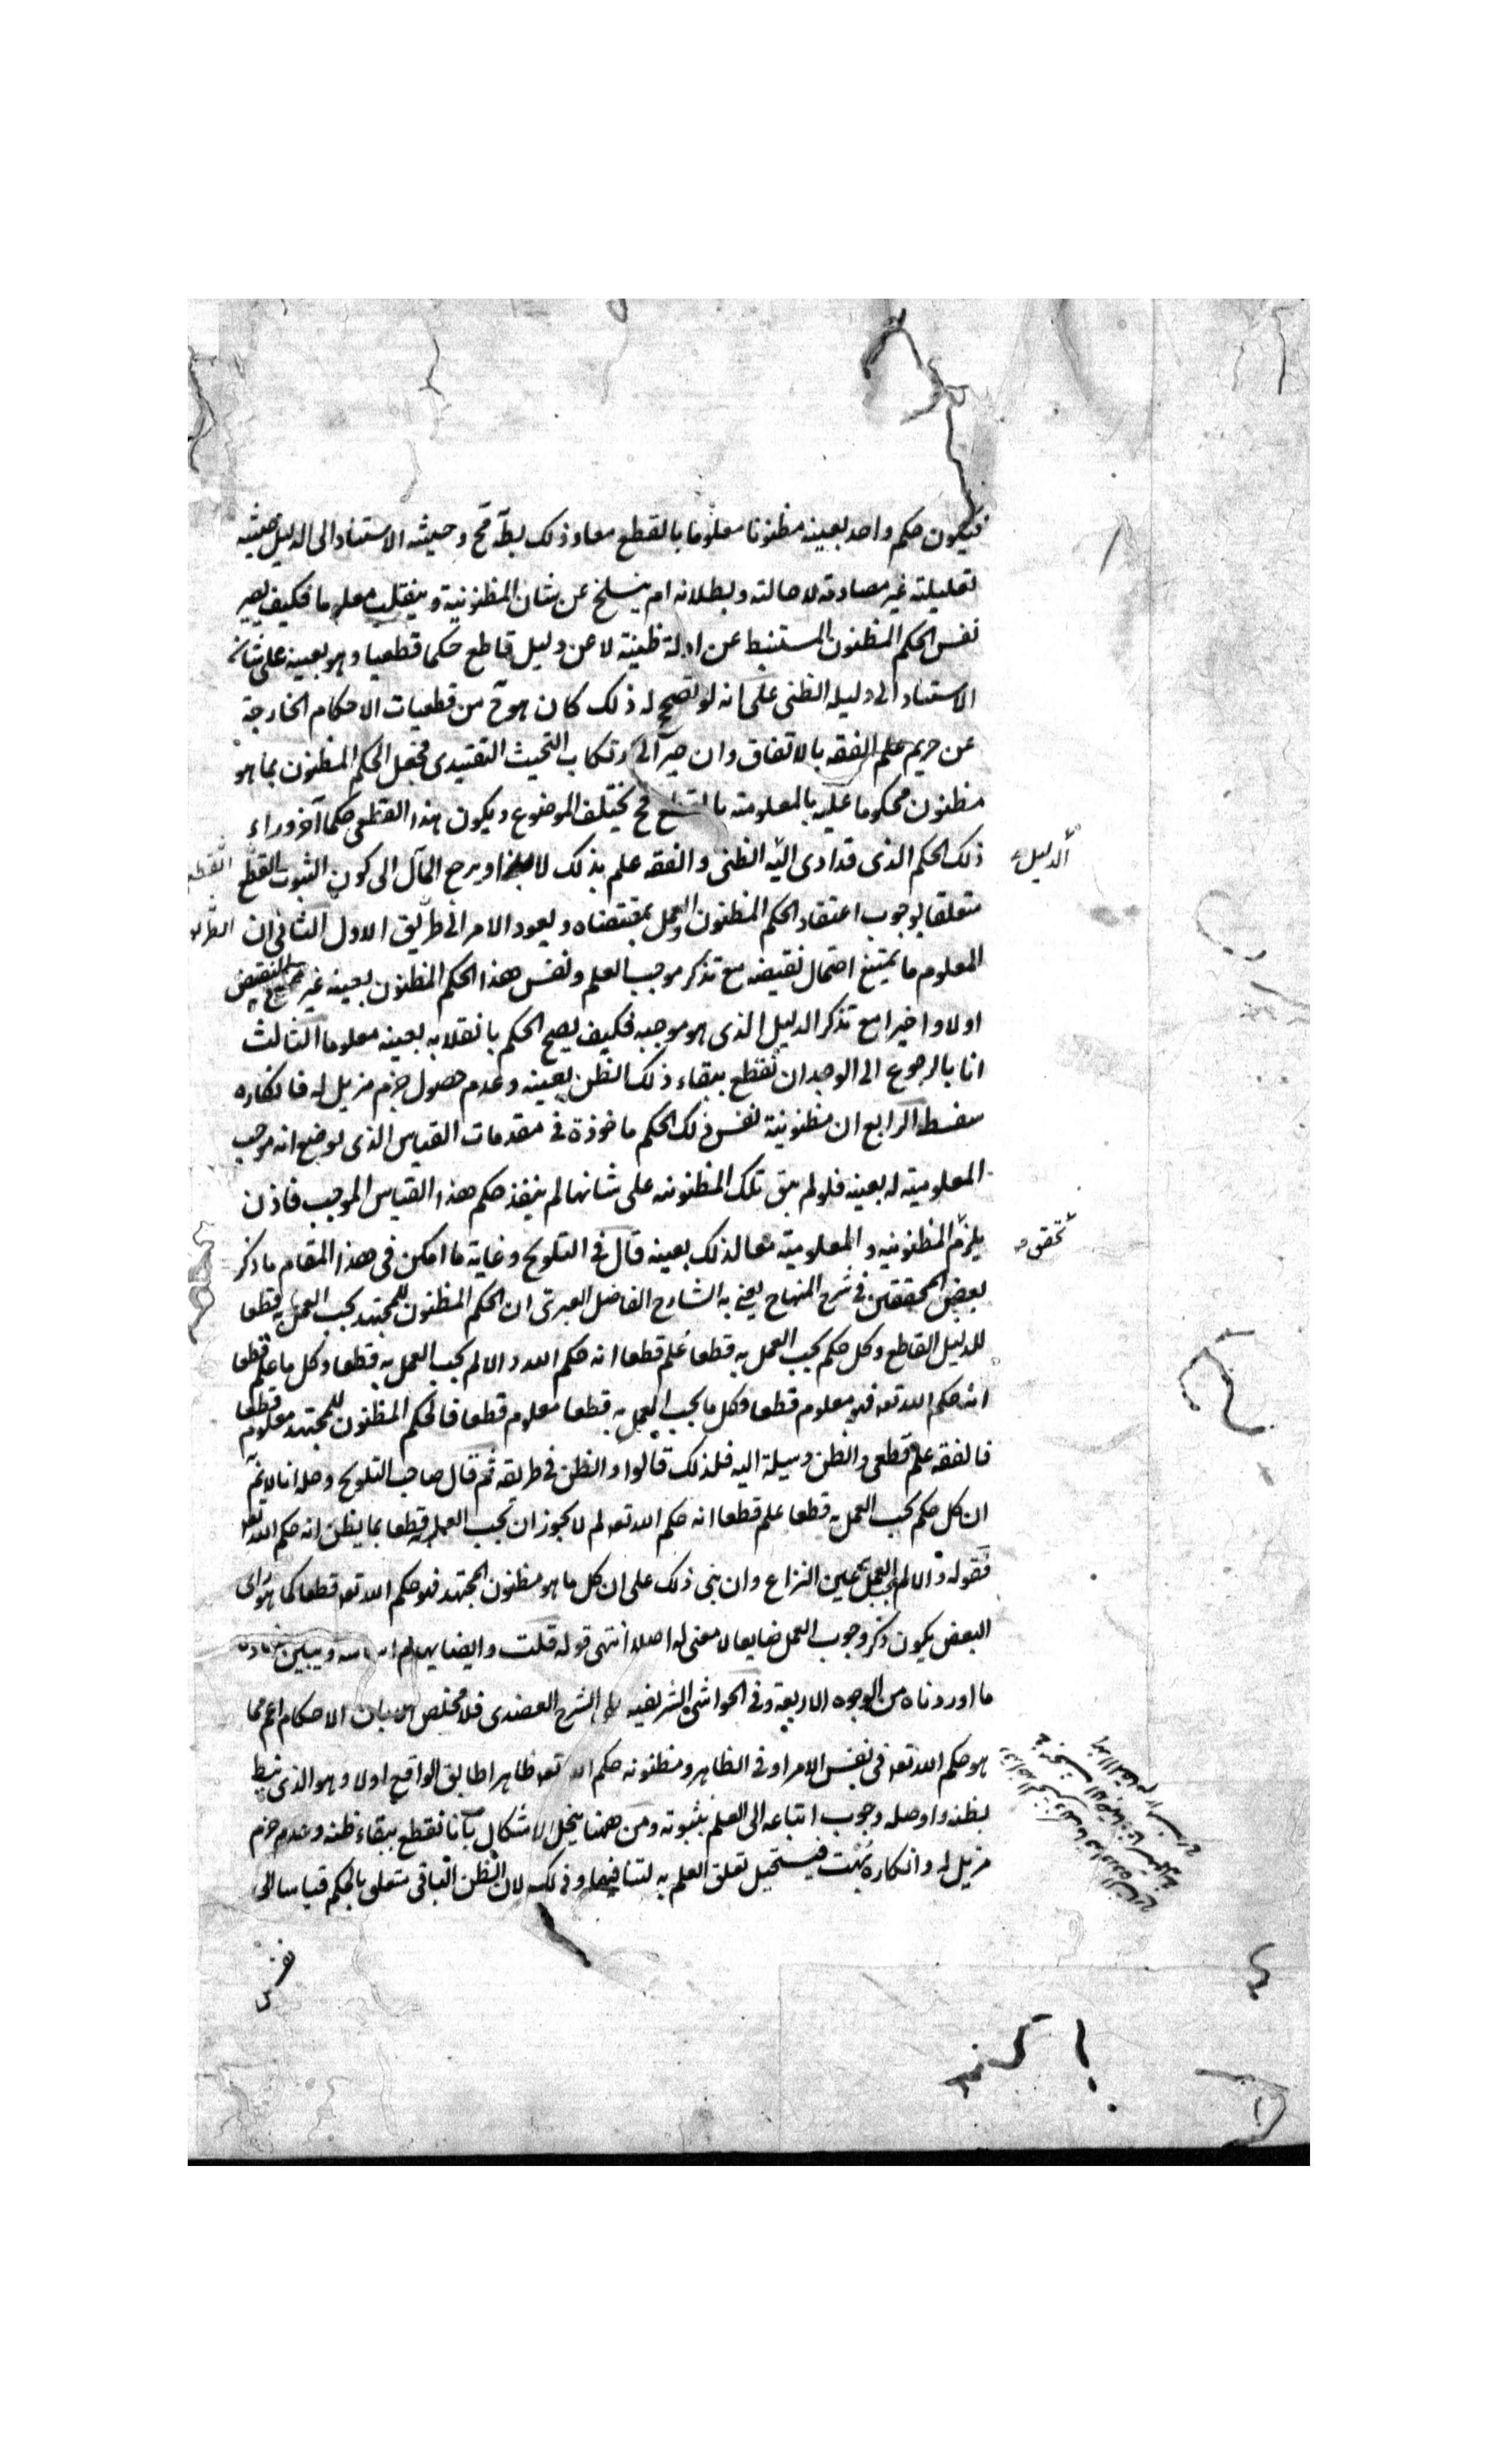 فيكون حكم واحد بعينه مظنونا معلوما بالقطع معا وذلك بط قح وحيثية الاستناد الى الدليل حيثية
تعليلية غير مصادمة لاحالته وبطلانه ام ينسلخ عن شان المظنونية وينقلب معلوما فكيف يصير
نفس الحكم المظنون المستنبط عن ادلة ظنية لا عن دليل قاطع حكما قطعيا وهو بعينه على شانه
الاستناد الى دليله الظنى على انه لو تصحح له ذلك كان هو ح من قطعيات الاحكام الخارجة
عن حريم علم الفقه بالاتفاق وان صير الى ارتكاب التحيث التقييدى فجعل الحكم المظنون بما هو
مظنون محكوما عليه بالمعلومية بالقطع فح يختلف الموضوع ويكون هذا القطعى حكما آخر وراء
ذلك الحكم الذى قد ادى اليه الظنى والفقه علم بذلك لا بهذا ويرجع المآل الى كون الثبوت القطع
الدليل
متعلقا بوجوب اعتقاد الحكم المظنون والعمل بمقتضاه ويعود الامر الى طريق الاول الثانى ان
المعلوم ما يمتنع احتمال نقيضه مع تذكر موجب العلم ونفس هذا الحكم المظنون بعينه غير النقيض
اولا واخيرا مع تذكر الدليل الذى هو موجبه فكيف يصح الحكم بانقلابه بعينه معلوما الثالث
انا بالرجوع الى الوجدان نقطع ببقاء ذلك الظن بعينه وعدم حصول جزم مزيل له فانكاره
سفسطة الرابع ان مظنونية نفس ذلك الحكم ماخوذة فى مقدمات القياس الذى يوضع انه موجب
المعلومية له بعينه فلو لم يبق تلك المظنونية على شانها لم ينفذ حكم هذا القياس الموجب فاذن
يلزم المظنونيه والمعلومية معا لذلك بعينه قال فى التلويح وغاية ما امكن فى هذا المقام ما ذكر
تحقق
بعض المحققين فى شرح المنهاج يعنى به الشارح الفاضل العبرى ان الحكم المظنون للمجتهد يجب العمل به قطعا
للدليل القاطع وكل حكم يجب العمل به قطعا علم قطعا انه حكم الله والا لم يجب العمل به قطعا وكل ما علم قطعا
انه حكم الله تعه فهو معلوم قطعا فكل ما يجب العمل به قطعا معلوم قطعا فالحكم المظنون للمجتهد معلوم قطعا
فالفقه علم قطعى والظن وسيلة اليه فلذلك قالوا والظن فى طريقه ثم قال صاحب التلويح وحله انا لا نم
ان كل حكم يجب العمل به قطعا علم قطعا انه حكم الله تعه لم لا يجوز ان يجب العمل قطعا بما يظن انه حكم الله تعه
فقوله والا لم يجب العمل به عين النزاع وان بنى ذلك على ان كل ما هو مظنون المجتهد فهو حكم الله تعه قطعا كما هو راى
البعض يكون ذكر وجوب العمل ضايعا لا معنى له اصلا انتهى قوله قلت وايضا يهدم اساسه ويبين فساده
ما اوردناه من الوجوه الاربعة وفى الحواشى الشريفيه على الشرح العضدى فلا مخلص الا بان الاحكام اعم مما
هو حكم الله تعه فى نفس الامر او فى الظاهر ومظنونه حكم الله تعه ظاهرا طابق الواقع اولا وهو الذى نيط
بظنه واوصله وجوب اتباعه الى العلم بثبوته ومن ههنا ينحل الاشكال بانا نقطع ببقاء ظنه وعدم جزم
مزيل له وانكاره بهت فيستحيل تعلق العلم به لتنافيهما وذلك لان الظن الباقى متعلق بالحكم قياسا الى
نفس